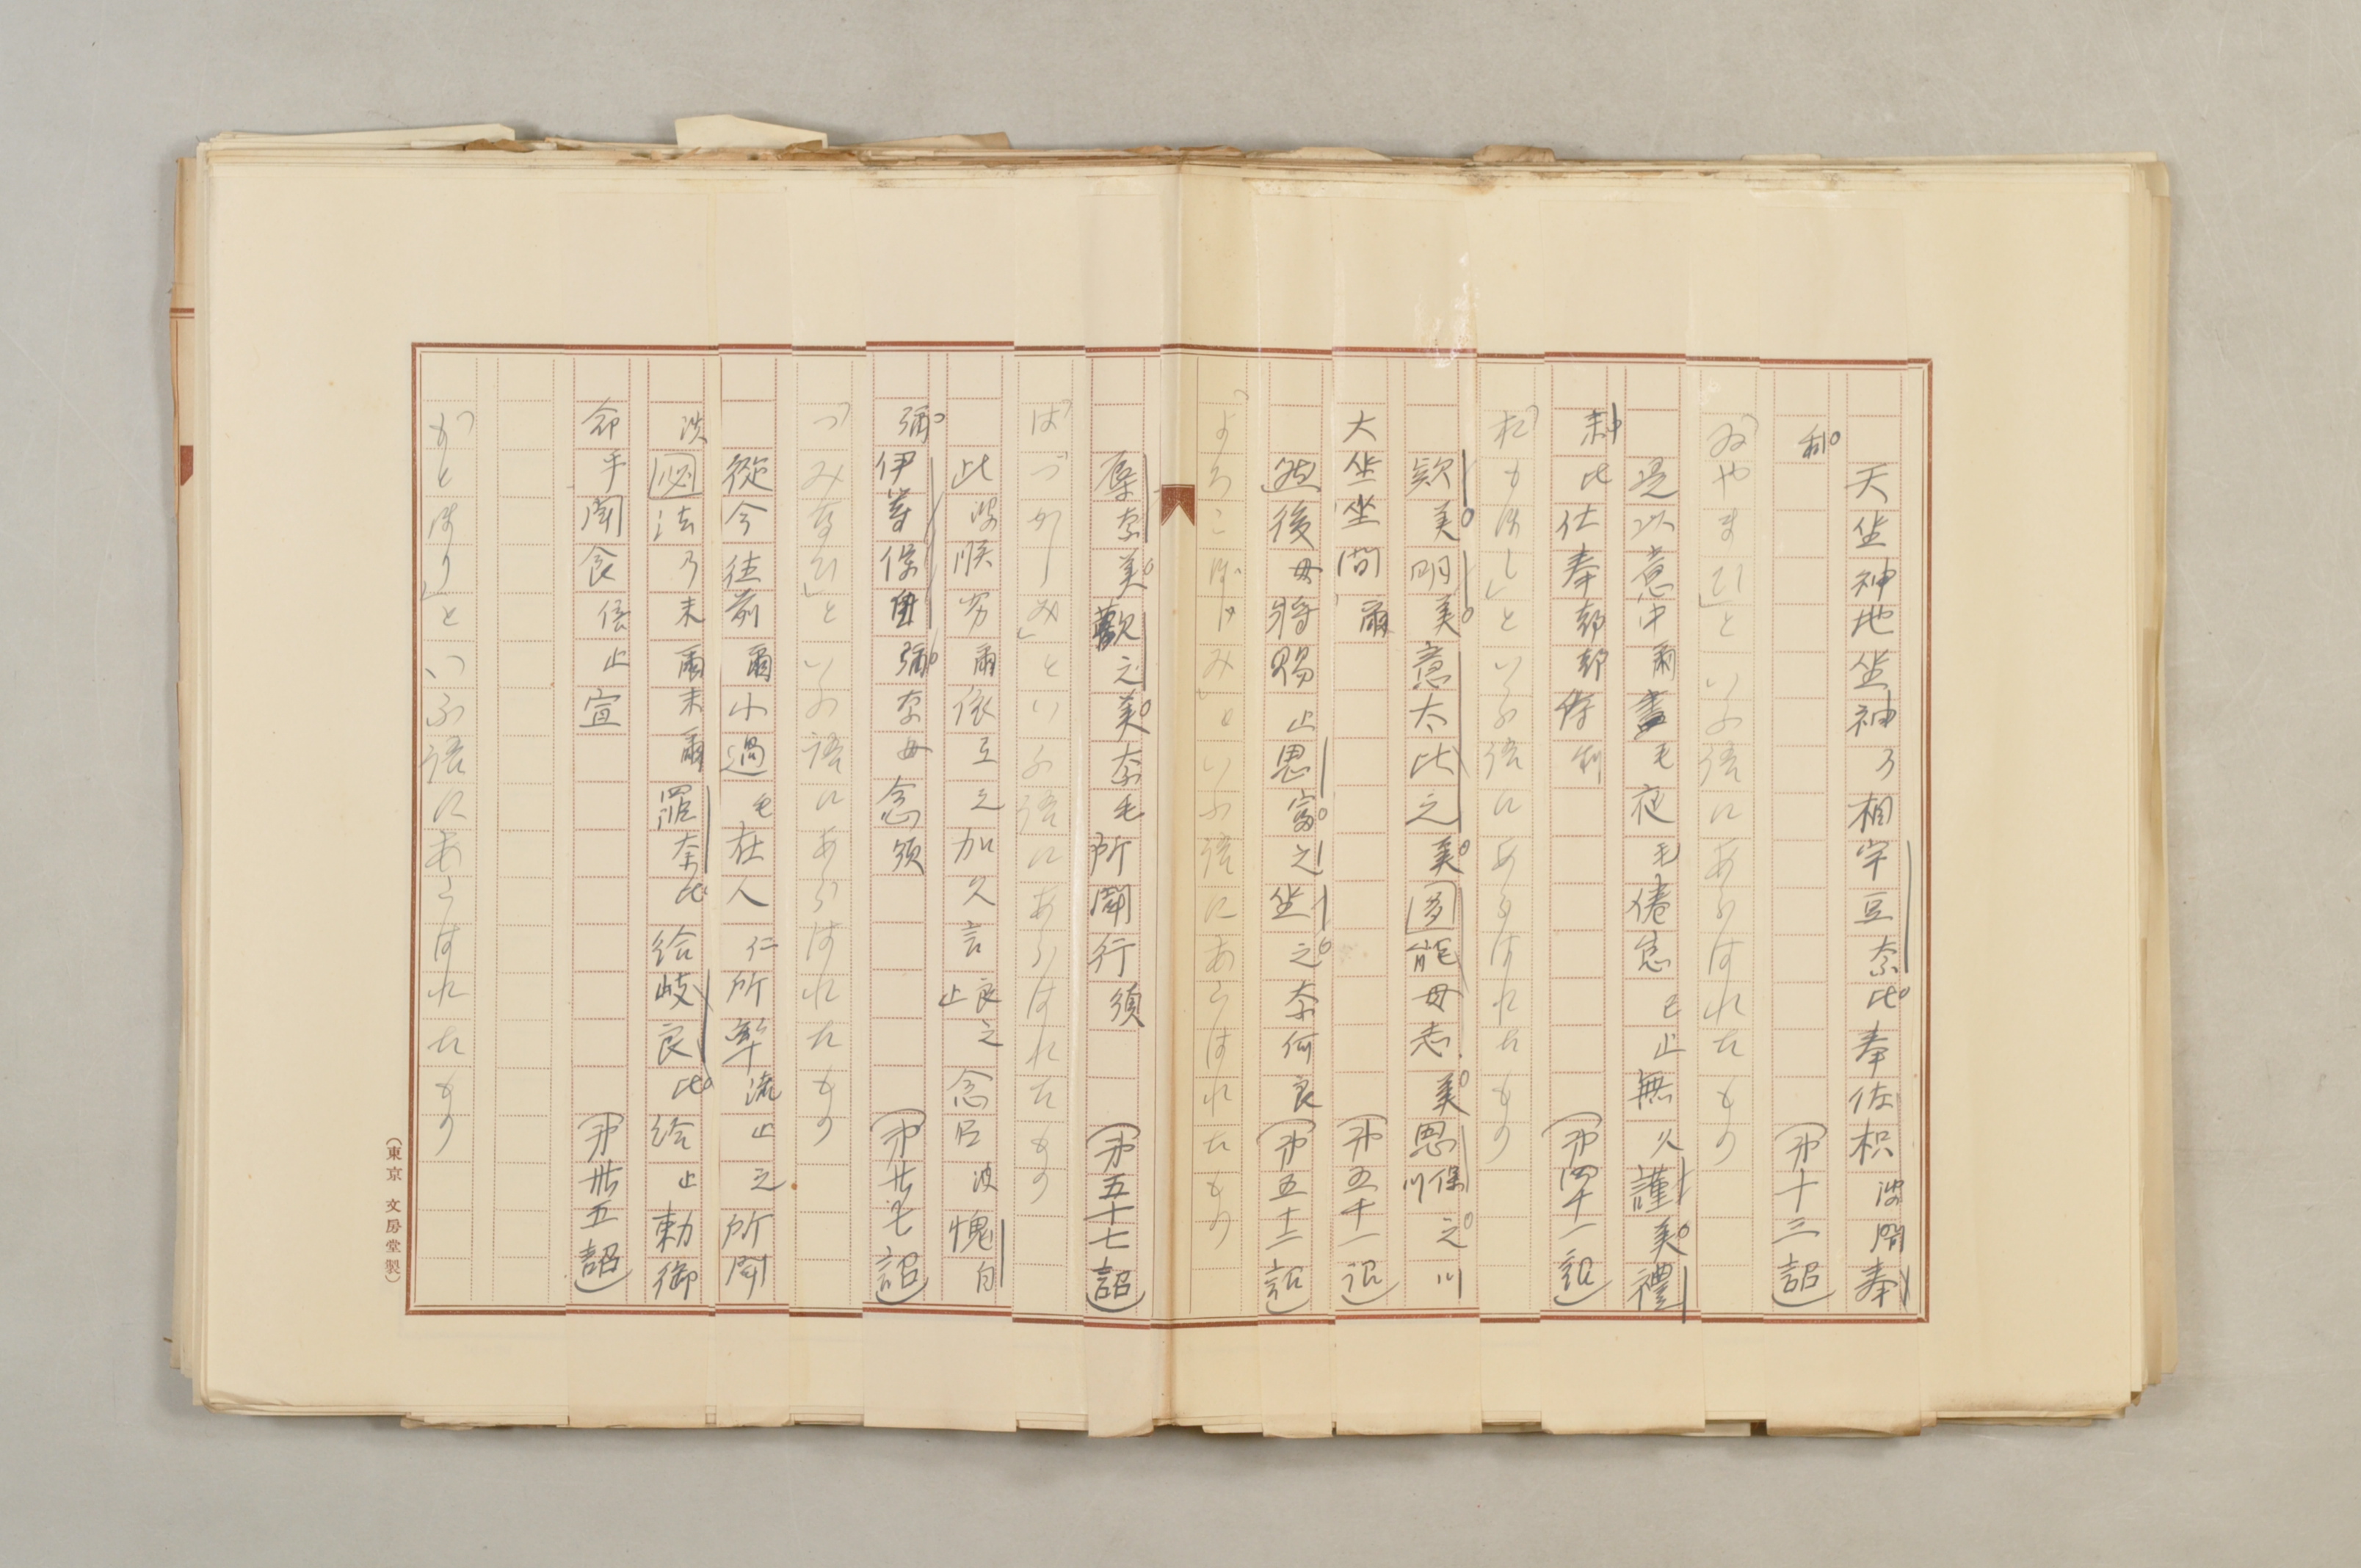 天坐神地坐神乃相宇豆奈比奉佐枳波閇奉
利（第十三詔）
「ゐやまひ」といふ語にあらはれたもの
是以意中爾晝毛夜毛倦怠己止無久謹美禮
末比仕奉都都侍利（第四十一詔）
「おもほし」といふ語にあらはれたもの
歓美明美意太比之美 能母志美思保川之川
大坐坐間爾（第五十一詔）
然後母将賜止思富之坐之奈何良（第五十二詔）
「よろこぼしみ」といふ語にあらはれたもの
辱奈美歓之美奈毛所聞行須（第五十七詔）
「はづかしみ」といふ語にあらはれたもの
此波順労爾依弖之加久言良之止念召波愧自
彌伊等保自彌奈母念須（第廿七詔）
「つみなひ」といふ語にあらはれたもの
従今往前爾小過毛在人仁所率流止之所聞
波 法乃末爾末爾罪奈比給岐良比給止勅御
命乎聞食倍止宣（第卅五詔）
「もとほり」といふ語にあらはれたもの
（東京 文房堂製）